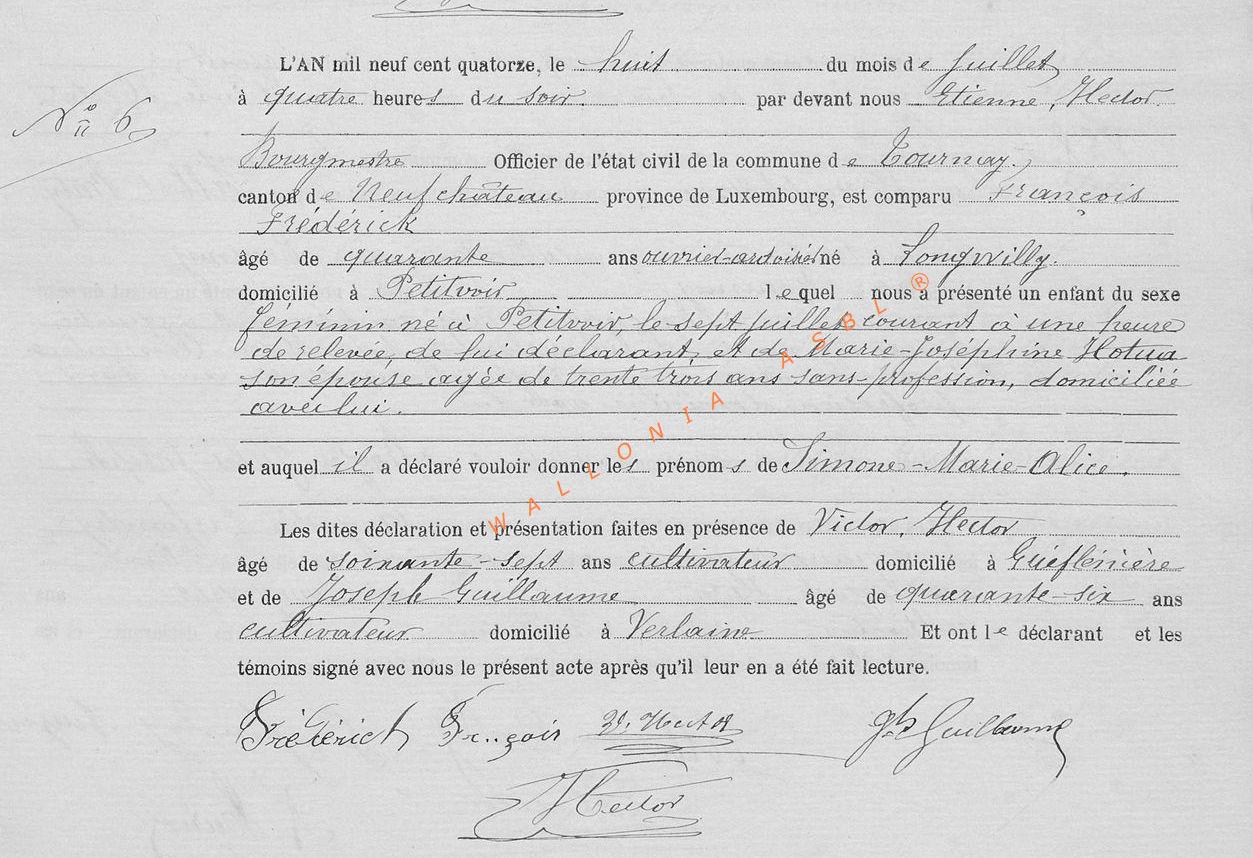 L'AN mil neuf cent quatorze, le huit du mois de juillet
à quatre heures du soir. par devant nous Etienne, Hector
N° 6
Bourgmestre Officier de l'état civil de la commune de Tournay.,
canton de Neufchâteau province de Luxembourg, est comparu François
Frédérick
âgé de quarante ans ouvrier-ardoisier né à Longwilly.
domicilié à Petitvoir lequel nous a présenté un enfant du sexe
féminin né à Petitvoir, le sept juillet courant à une heure
de relevée, de lui déclarant, et de Marie-Joséphine Hotua
son épouse agée de trente trois ans sans-profession, domiciliée
avec lui.
et auquel il a déclaré vouloir donner les prénoms de Simone-Marie-Alice.
Les dites déclaration et présentation faites en présence de Victor, Hector
âgé de soixante-sept ans cultivateur domicilié à
et de Joseph Guillaume âgé de quarante-six ans
cultivateur domicilié à Verlaine Et ont le déclarant et les
témoins signé avec nous le présent acte après qu'il leur en a été fait lecture.
Frédérick François V. Hector Jph Guillaume
Hector
WALLONIA ASBL ®